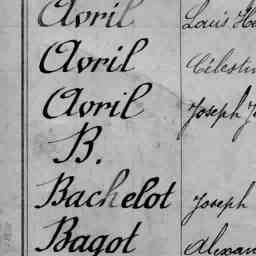 Avril Louis
Avril Célestin
Avril Joseph
B.
Bachelot Joseph
Bagot